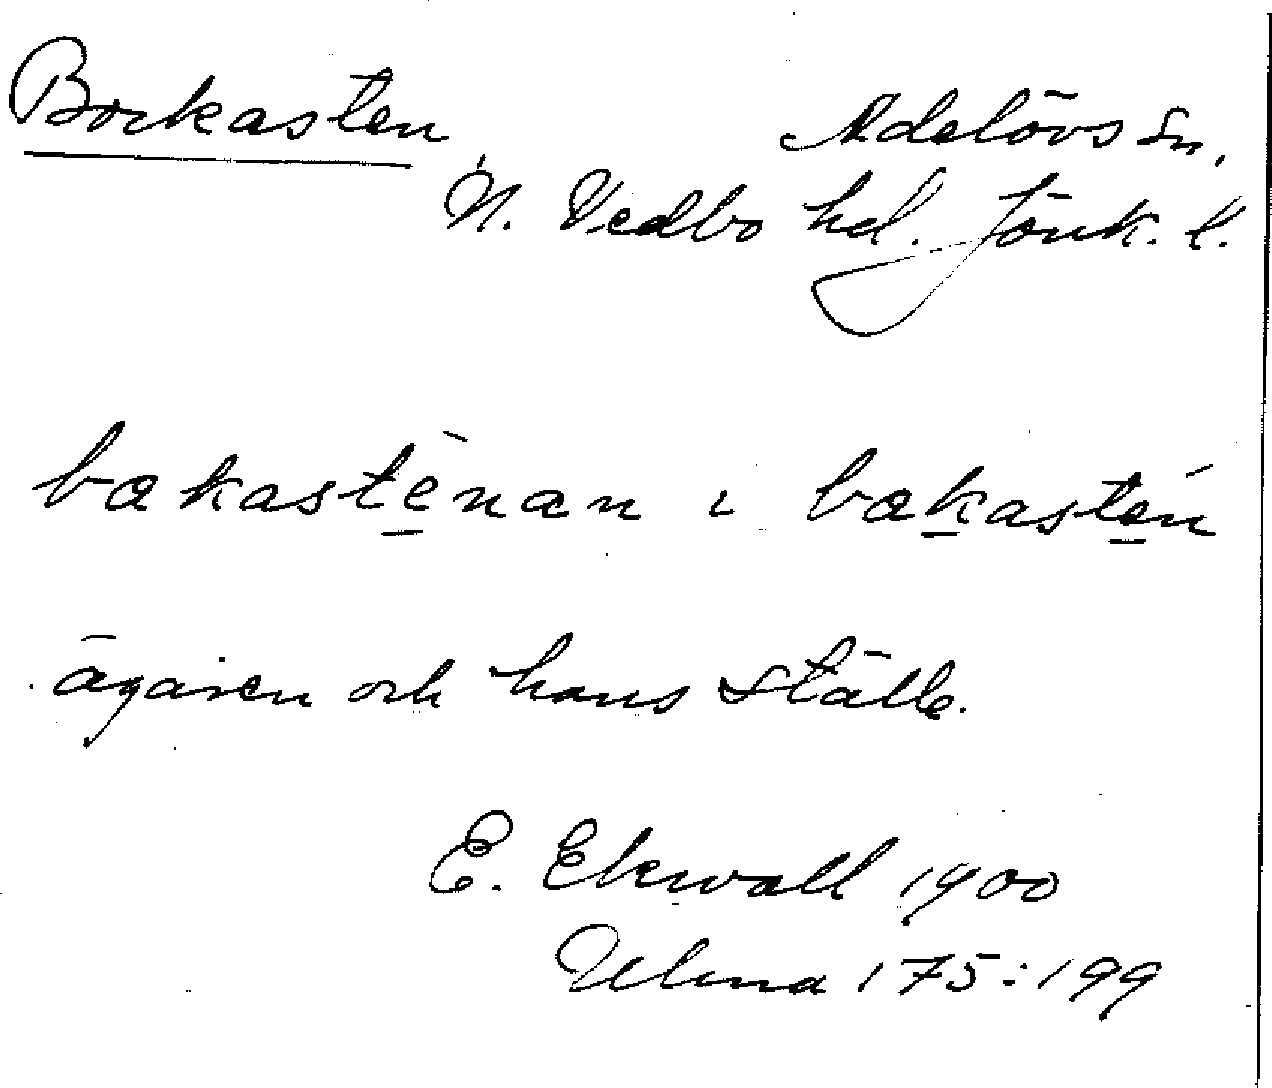 Borkasten, Adelövs sn,
N. Vedbo hd. Jönk. l.
bakastènan i bakastén
ägaren och hans ställe.
E. Ekwall 1900
Ulma 175:199